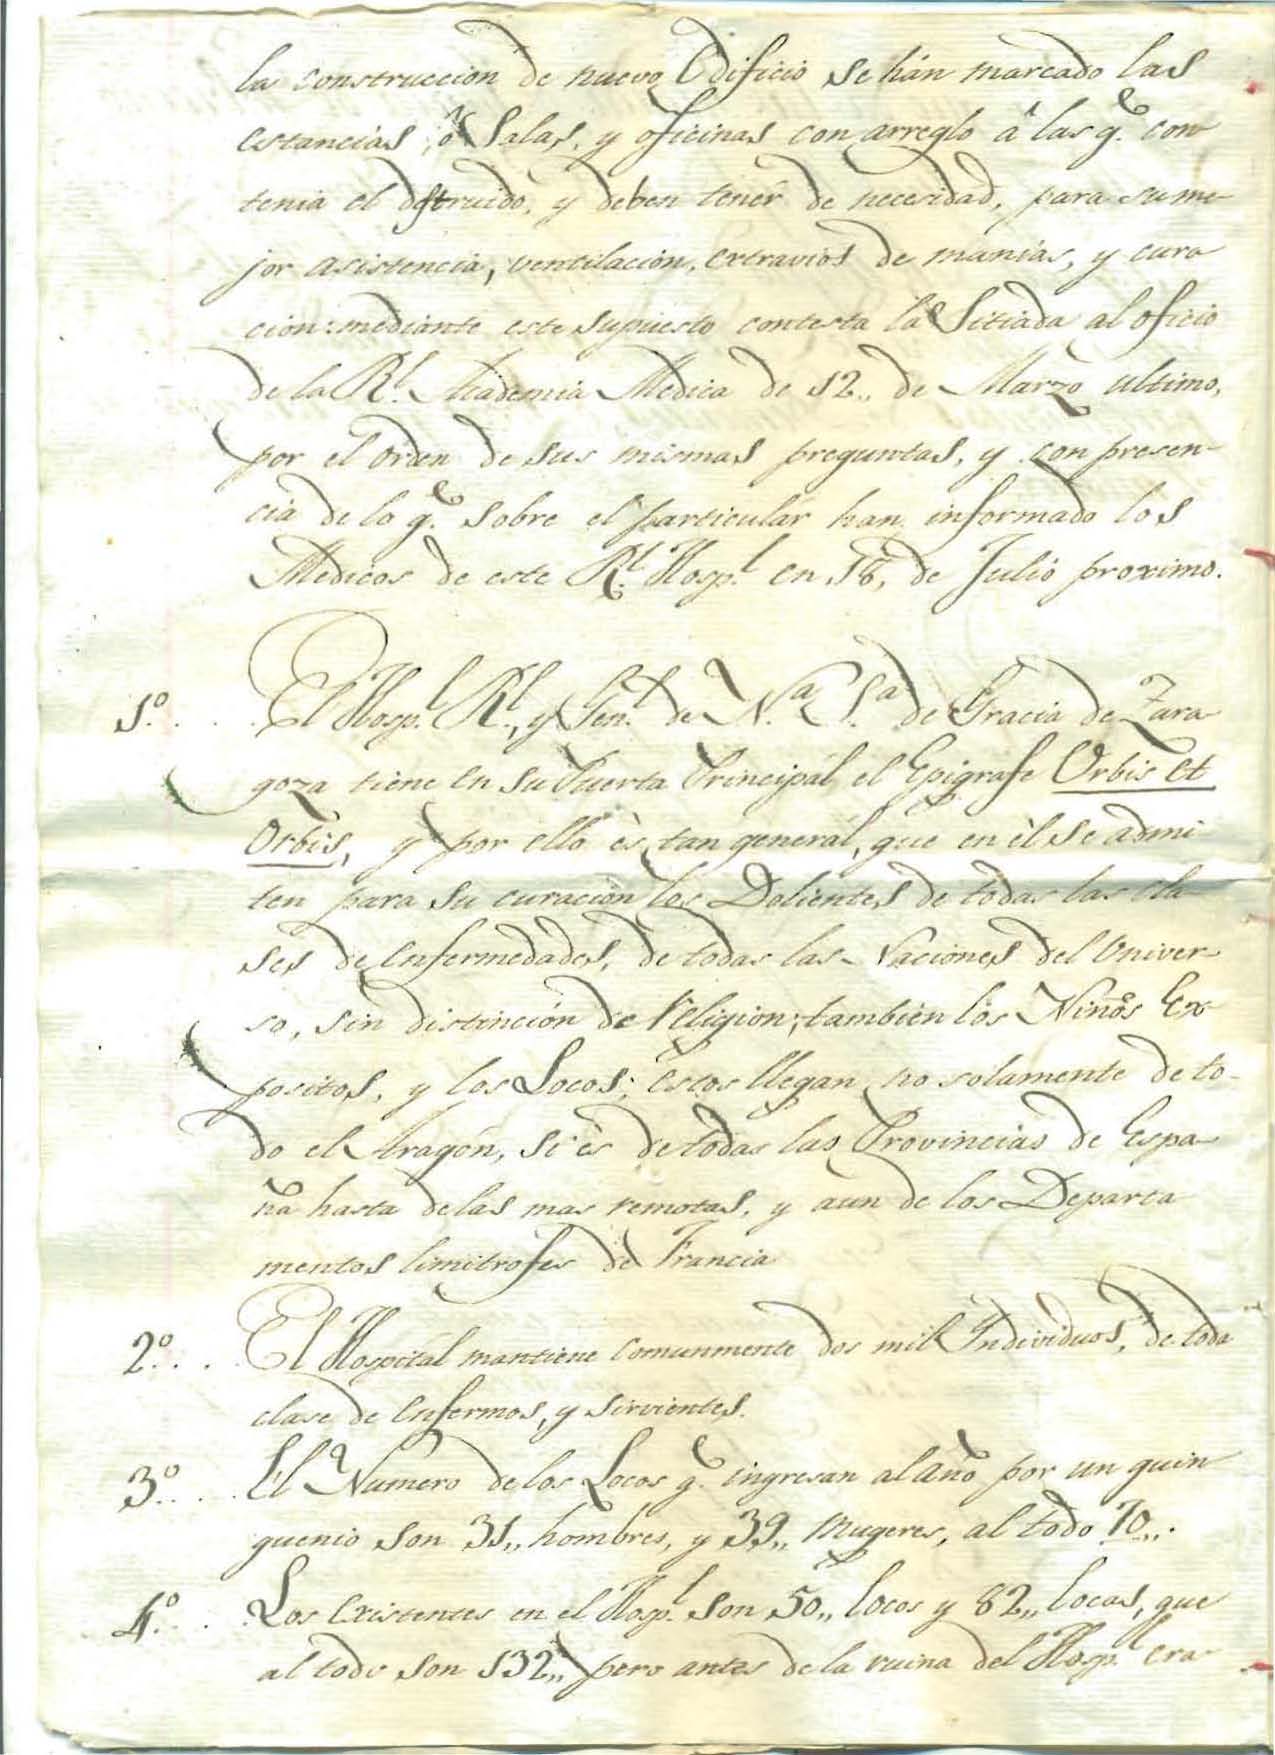 la construccion de nuevo Edificio se hán marcado las
estancias, ò Salas, y oficinas con arreglo â las q.e con
tenia el destruido, y deben tener de necesidad, para su me-
jor asistencia, ventilacion, extravios de manias, y cura
cion: mediante este supuesto contesta la Sitiada al oficio
de la R.l Academia Medica de 12,, de Marzo ultimo,
por el orden de sus mismas preguntas, y con presen-
cia de lo q.e sobre el particular han informado los
Medicos de este R.l Hosp.l en 18, de Julio proximo.
1.º . . . El Hosp.l R.l, y Gen.l de N.a S.a de Gracia de Zara
goza tiene en su Puerta Principál el Epigrafe Orbis et
Orbis, y por ello ès tan generál, que en èl se admi
ten para su curación los Dolientes de todas las cla
ses de enfermedades, de todas las Naciones del Univer-
so, sin distinción de Religion; tambien los Niños Ex-
positos, y los Locos; estos llegan no solamente de to-
do el Aragón, si ès de todas las Provincias de Espa-
ña hasta de las mas remotas, y aun de los Departa
mentos limitrofes de Francia
2.º . . El Hospital mantiene comunmente dos mil Individuos, de toda
clase de enfermos, y sirvientes.
3.º . . . El Numero de los Locos q.e ingresan al año por un quin
quenio son 31,, hombres, y 39,, Mugeres, al todo 70,,.
4.º . . . Los Existentes en el Hosp.l son 50,, locos y 82,, locas, que
al todo son 132,, pero antes de la ruina del Hosp.l era